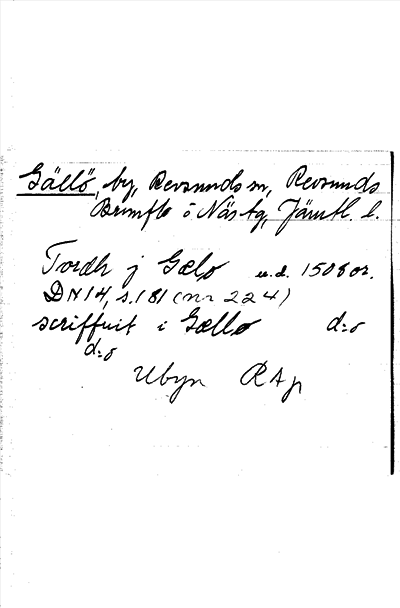 Gällö, by, Revsunds sn, Revsunds
Brunflo o Näs tg, Jämtl. l.
Tordh j Gælo u.d. 1508 or.
DN 14, s. 181 (nr 224)
scriffuit i Gællo d:o
d:o
Ubyn RAp